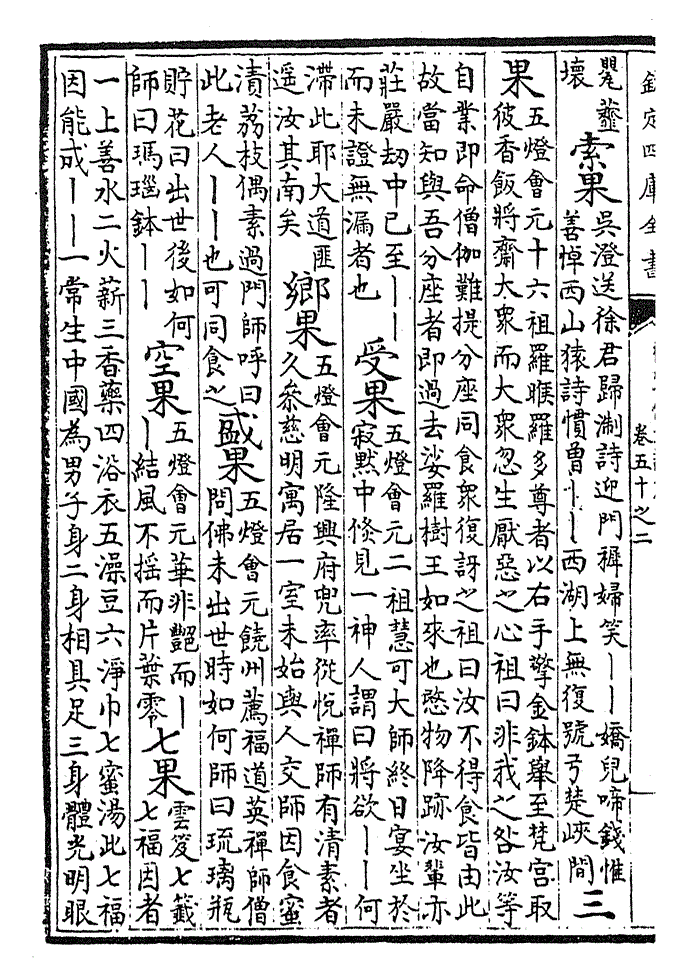 欽定四庫全書
卷五十之二
甖虀
壞
索果
吳澄送徐君歸淛詩迎門稺婦笑丨丨嬌兒啼錢惟
善悼西山猿詩慣曾丨丨西湖上無復號弓楚峽間
三
果
五燈會元十六祖羅睺羅多尊者以右手擎金鉢舉至梵宮取
彼香飯將齋大衆而大衆忽生厭惡之心祖曰非我之咎汝等
自業即命僧伽難提分座同食衆復訝之祖曰汝不得食皆由此
故當知與吾分座者即過去娑羅樹王如來也愍物降跡汝輩亦
莊嚴刼中已至丨丨
而未證無漏者也
受果
五燈會元二祖慧可大師終日宴坐於
寂默中倐見一神人謂曰將欲丨丨何
滯此耶大道匪
遥汝其南矣
鄉果
五燈會元隆興府兜率從悦禪師有清素者
久叅慈明寓居一室未始與人交師因食蜜
漬荔枝偶素過門師呼曰
此老人丨丨也可同食之
盛果
五燈會元饒州薦福道英禪師僧
問佛未出世時如何師曰琉璃瓶
貯花曰出世後如何
師曰瑪瑙鉢丨丨
空果
五燈會元華非豔而丨
丨結風不揺而片葉零
七果
雲笈七籤
七福因者
一上善水二火薪三香藥四浴衣五澡豆六淨巾七蜜湯此七福
因能成丨丨一常生中國為男子身二身相具足三身體光明眼